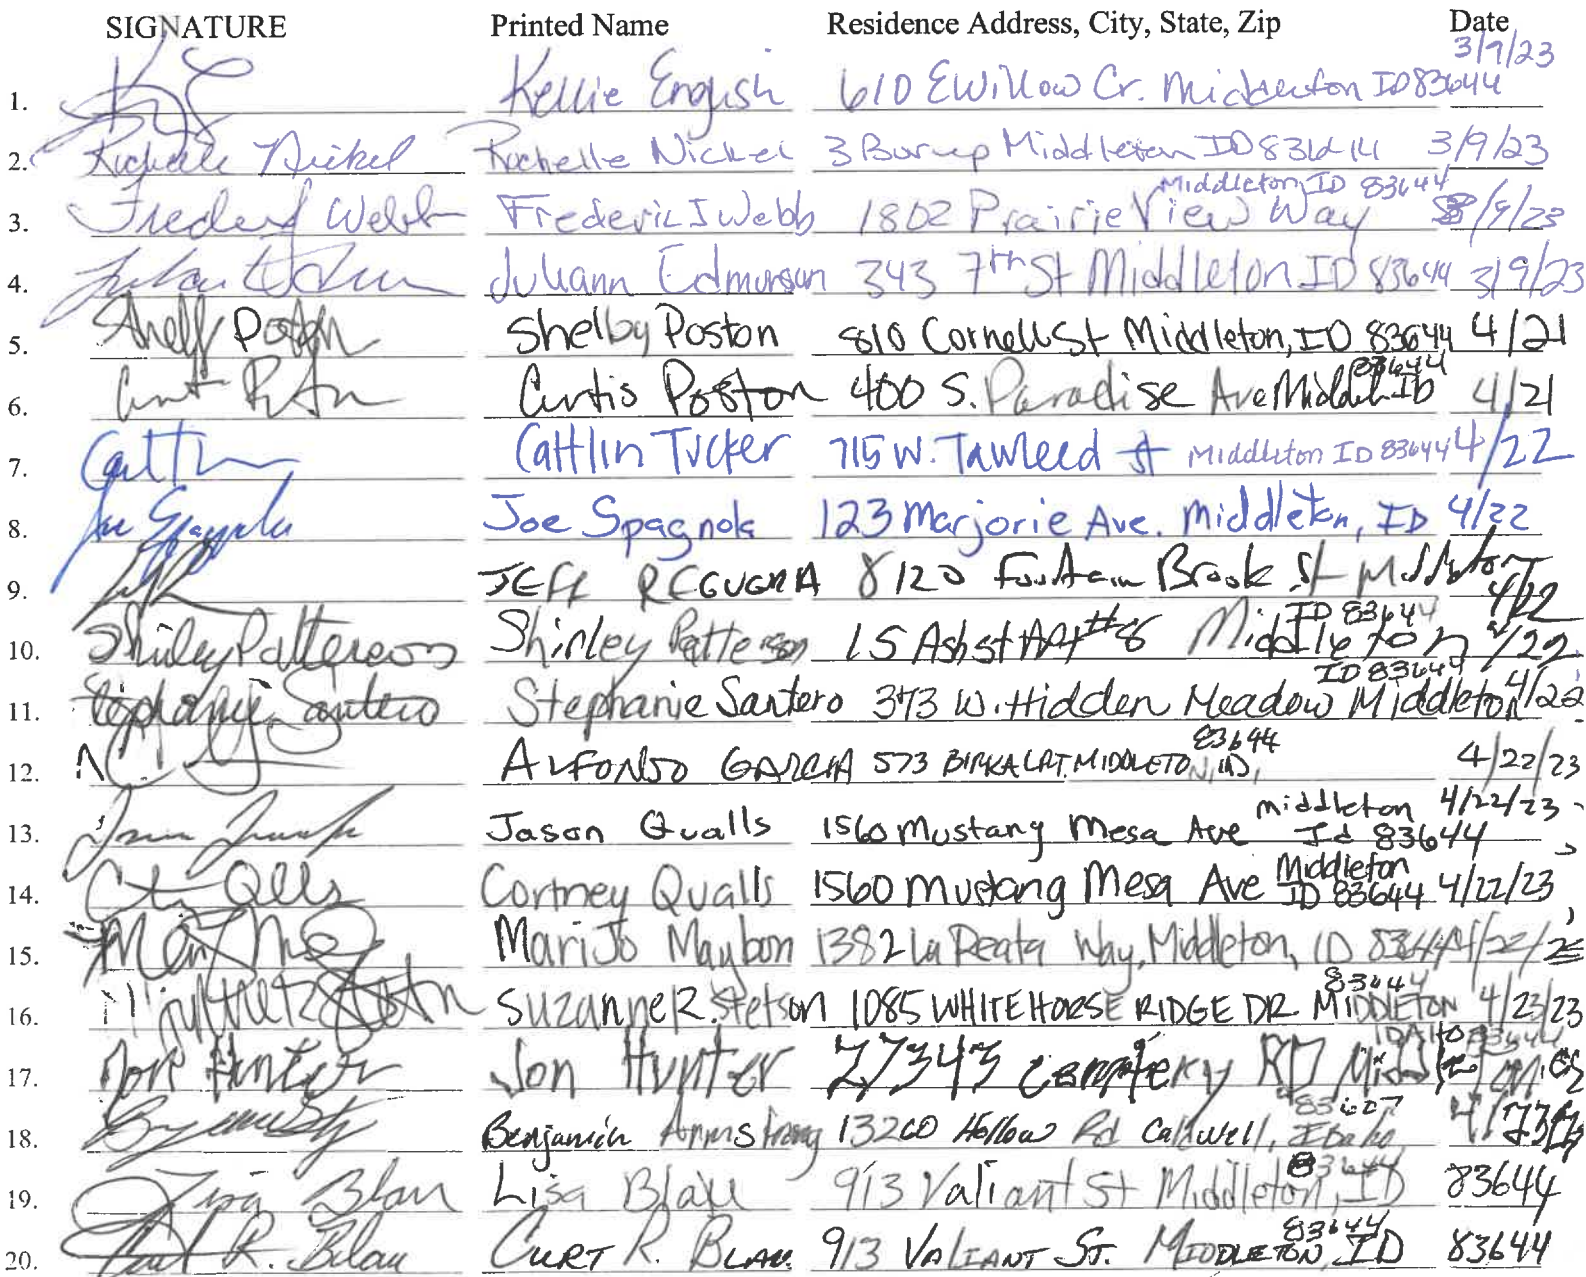 SIGNATURE Printed Name Residence Address, City, State, Zip Date
3/9/23
1. Kellie English 610 E Willow Cr. Middleton ID 83644
2. Rochelle Nickel Rochelle Nickel 3 Burup Middleton ID 83644 3/9/23
Middleton, ID 83644
3. Frederic Webb Frederic J Webb 1802 Prairie View Way 3/9/23
4. Juliann Edmunson 343 7th St Middleton ID 83644 3/9/23
5. Shelby Poston Shelby Poston 810 Cornell St Middleton, ID 83644 4/21
83644
6. Curtis Poston 400 S. Paradise Ave ID 4/21
7. Caitlin Tucker 715 W. St Middleton ID 83644 4/22
8. Joe Spagnola Joe Spagnola 123 Marjorie Ave. Middleton, ID 4/22
9. JEFF 8120 Fountain Brook St Middleton
ID 83644 4/22
10. Shirley Patterson Shirley Patterson 15 Ash st Apt #8 Middleton 4/22
ID 83644
11. Stephanie Santero Stephanie Santero 373 W. Hidden Meadow Middleton 4/22
83644
12. ALFONSO GARCIA 573 MIDDLETON, ID, 4/22/23
middleton 4/22/23
13. Jason Qualls 1560 Mustang Mesa Ave Id 83644
Middleton
14. Cortney Qualls 1560 Mustang Mesa Ave ID 83644 4/22/23
15. MariJo Maybon 1382 La Reata Way, Middleton, ID 83644 4/22/23
83644
16. Suzanne R. Stetson 1085 WHITEHORSE RIDGE DR MIDDLETON 4/23/23
IDAHO 83644
17. Jon Hunter Jon Hunter 27343 RD
83607
18. Benjamin Armstrong 13200 Hollow Rd Caldwell, Idaho
83644
19. Lisa Blau Lisa Blau 913 Valiant St Middleton, ID 83644
83644
20. R. Blau CURT R. BLAU. 913 VALIANT ST. MIDDLETON, ID 83644